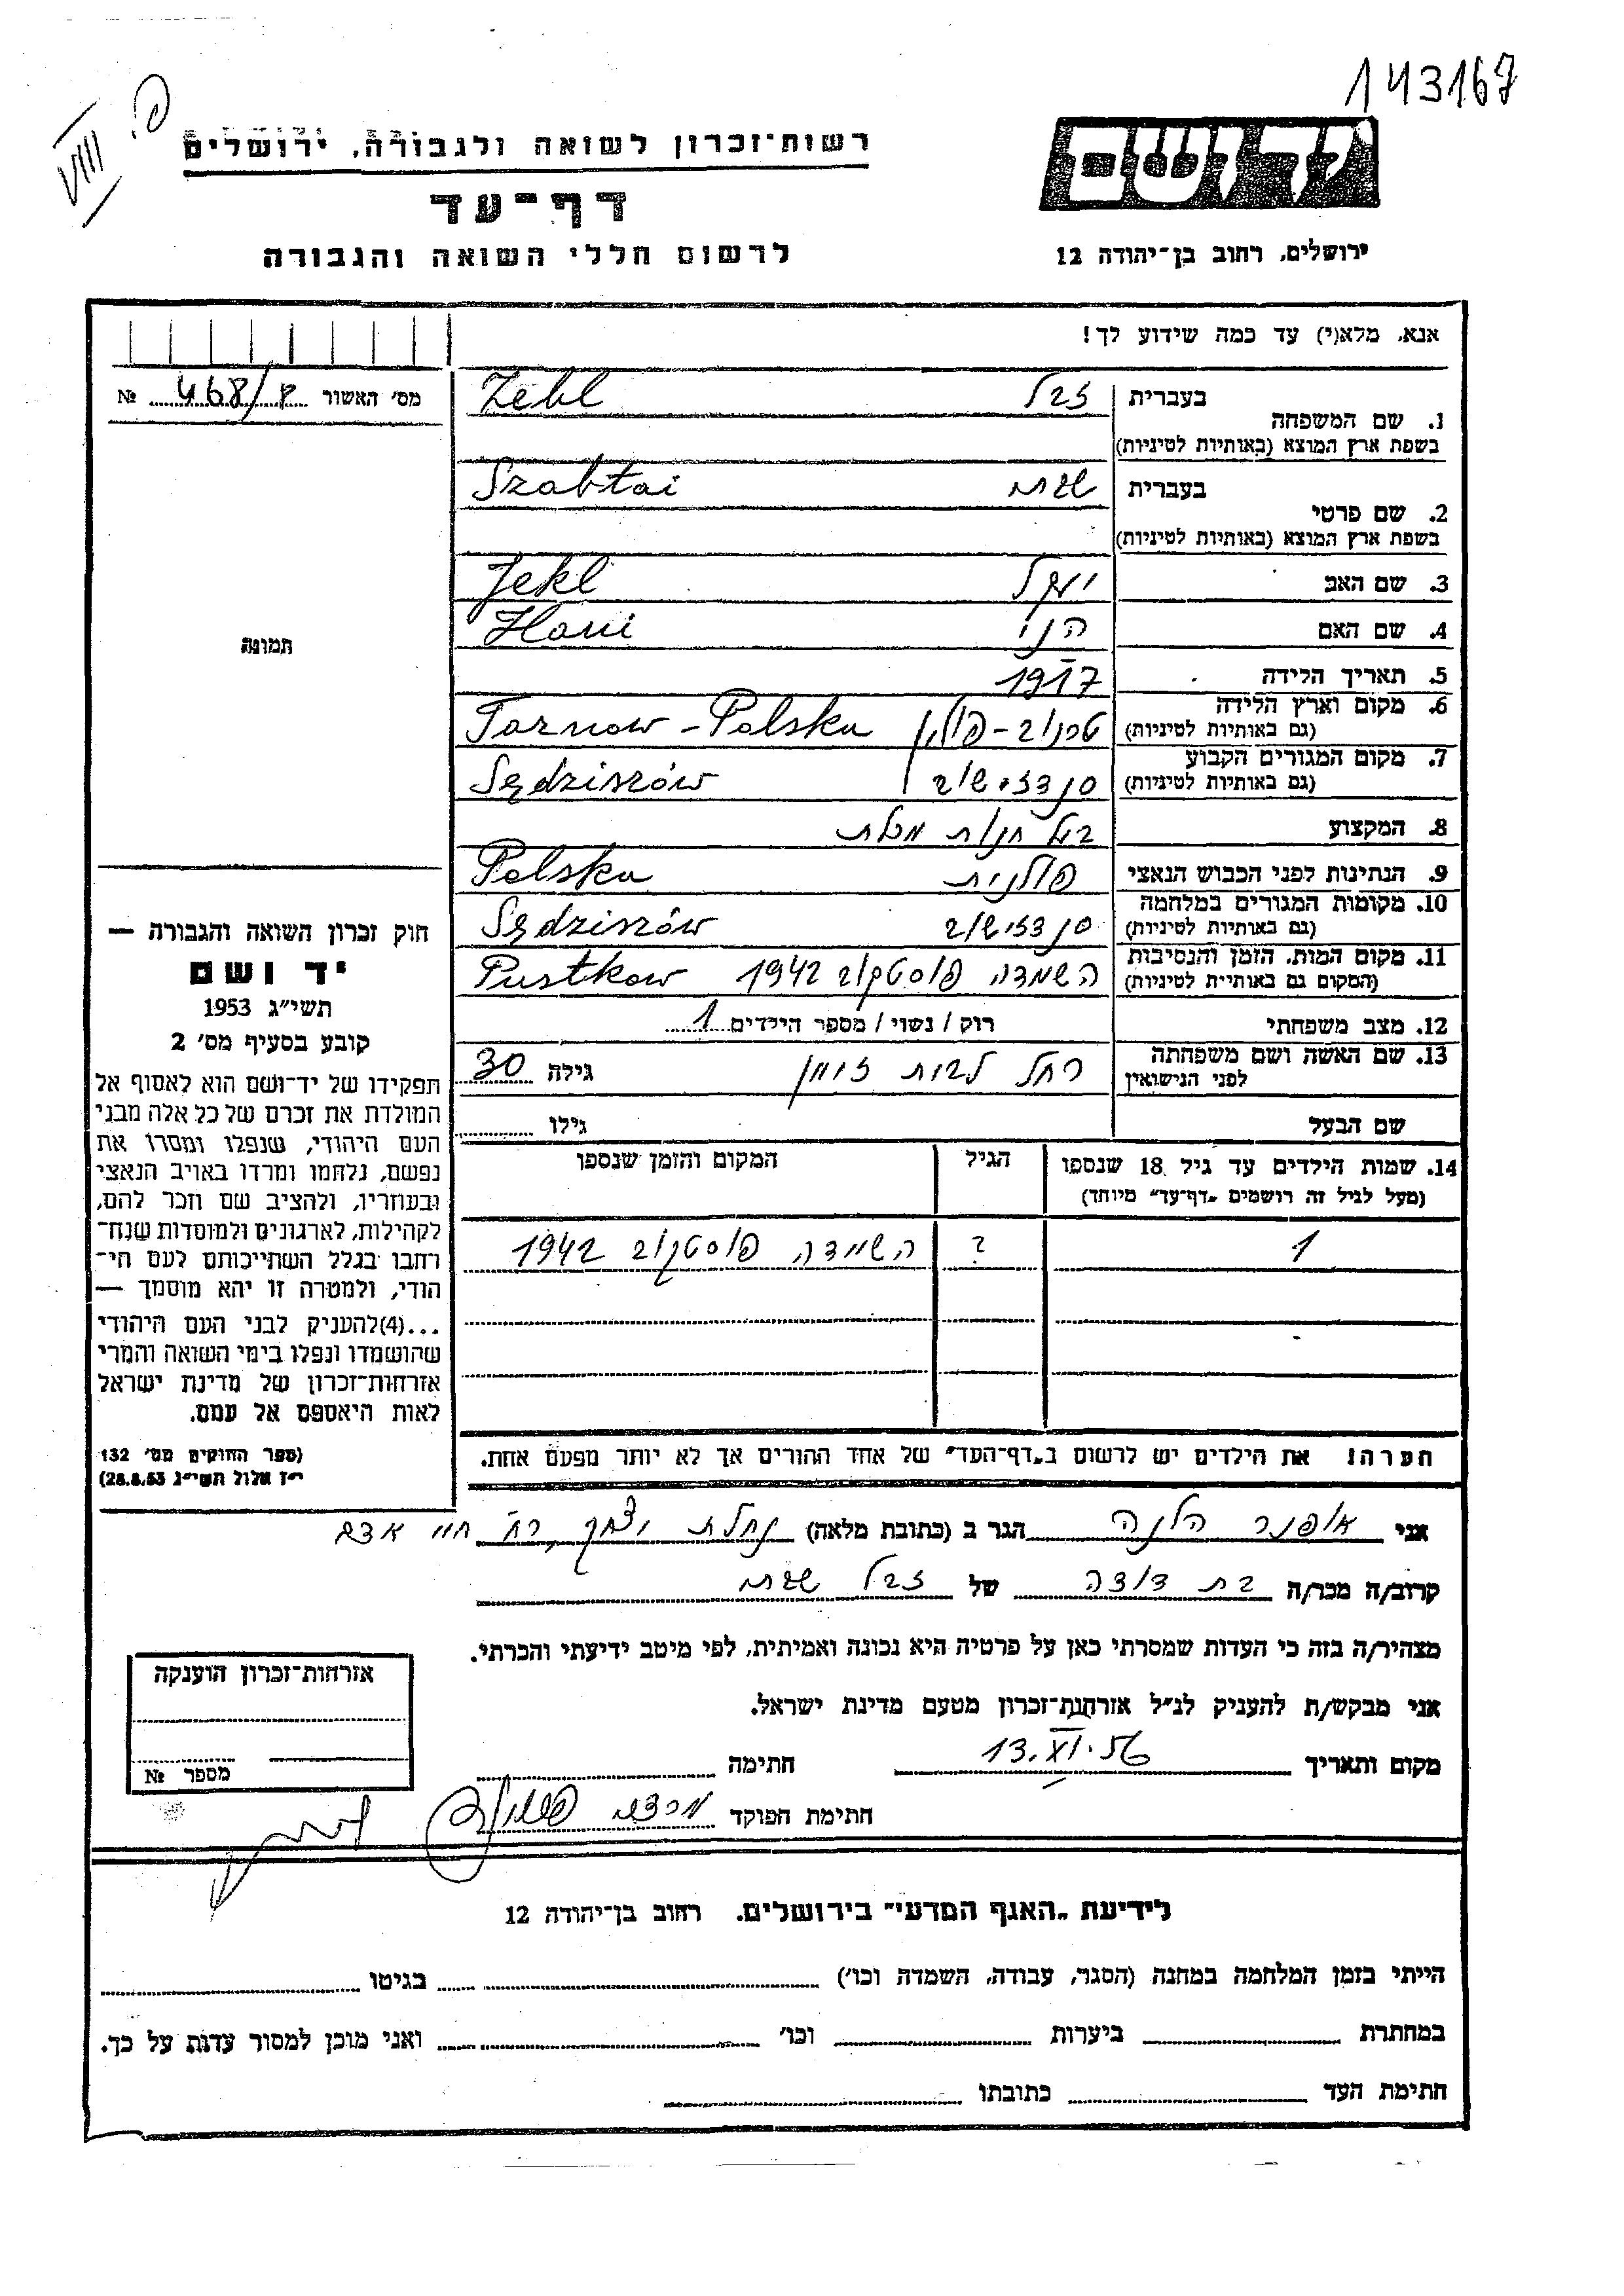 143167
פ.
VIII
רשות־זכרון לשואה ולגבורה, ירושלים
יד ושם
דף־עד
לרשום חללי השואה והגבורה
ירושלים, רחוב בן־יהודה 12
אנא, מלא(י) עד כמה שידוע לך!
מס׳ האשור 468/פ №
תמונה
חוק זכרון השואה והגבורה —
יד ושם
תשי״ג 1953
קובע בסעיף מס׳ 2
תפקידו של יד־ושם הוא לאסוף אל
המולדת את זכרם של כל אלה מבני
העם היהודי, שנפלו ומסרו את
נפשם, נלחמו ומרדו באויב הנאצי
ובעוזריו, ולהציב שם וזכר להם,
לקהילות, לארגונים ולמוסדות שנח־
רחבו בגלל השתייכותם לעם הי־
הודי, ולמטרה זו יהא מוסמך —
...(4)להעניק לבני העם היהודי
שהושמדו ונפלו בימי השואה והמרי
אזרחות־זכרון של מדינת ישראל
לאות היאספם אל עמם.
(ספר החוקים מס׳ 132
י״ז אלול תשי״ג 28.8.53)
בעברית זבל Zebl
1. שם המשפחה
בשפת ארץ המוצא (באותיות לטיניות)
בעברית שבתי Szabtai
2. שם פרטי
בשפת ארץ המוצא (באותיות לטיניות)
3. שם האב יעקל Jekl
4. שם האם הני Hani
5. תאריך הלידה 1917
6. מקום וארץ הלידה טרנוב - פולין Tarnow - Polska
(גם באותיות לטיניות)
7. מקום המגורים הקבוע סנדזישוב Sędziszów
(גם באותיות לטיניות)
8. המקצוע בעל חנות מכלת
9. הנתינות לפני הכבוש הנאצי פולנית Polska
10. מקומות המגורים במלחמה סנדזישוב Sędziszów
(גם באותיות לטיניות)
11. מקום המות, הזמן והנסיבות השמדה פוסטקוב 1942 Pustkow
(המקום גם באותיית לטיניות)
12. מצב משפחתי רוק / נשוי / מספר הילדים 1
13. שם האשה ושם משפחתה רחל לבית גילה 30
לפני הנישואין
שם הבעל גילו
14. שמות הילדים עד גיל 18 שנספו הגיל המקום והזמן שנספו
(מעל לגיל זה רושמים „דף־עד״ מיוחד)
1 ? השמדה פוסטקוב 1942
הערה! את הילדים יש לרשום ב„דף־העד״ של אחד ההורים אך לא יותר מפעם אחת.
אני אופנר הלנה הגר ב (כתובת מלאה) נחלת יצחק, רח׳
קרוב/ה מכר/ה בת דודה של זבל שבתי
מצהיר/ה בזה כי העדות שמסרתי כאן על פרטיה היא נכונה ואמיתית, לפי מיטב ידיעתי והכרתי.
אני מבקש/ת להעניק לנ״ל אזרחות־זכרון מטעם מדינת ישראל.
מקום ותאריך 13.XI.56 חתימה
חתימת הפוקד
אזרחות־זכרון הוענקה
מספר №
לידיעת „האגף המדעי״ בירושלים. רחוב בן־יהודה 12
הייתי בזמן המלחמה במחנה (הסגר, עבודה, השמדה וכו׳) בגיטו
במחתרת ביערות וכו׳ ואני מוכן למסור עדות על כך.
חתימת העד כתובתו